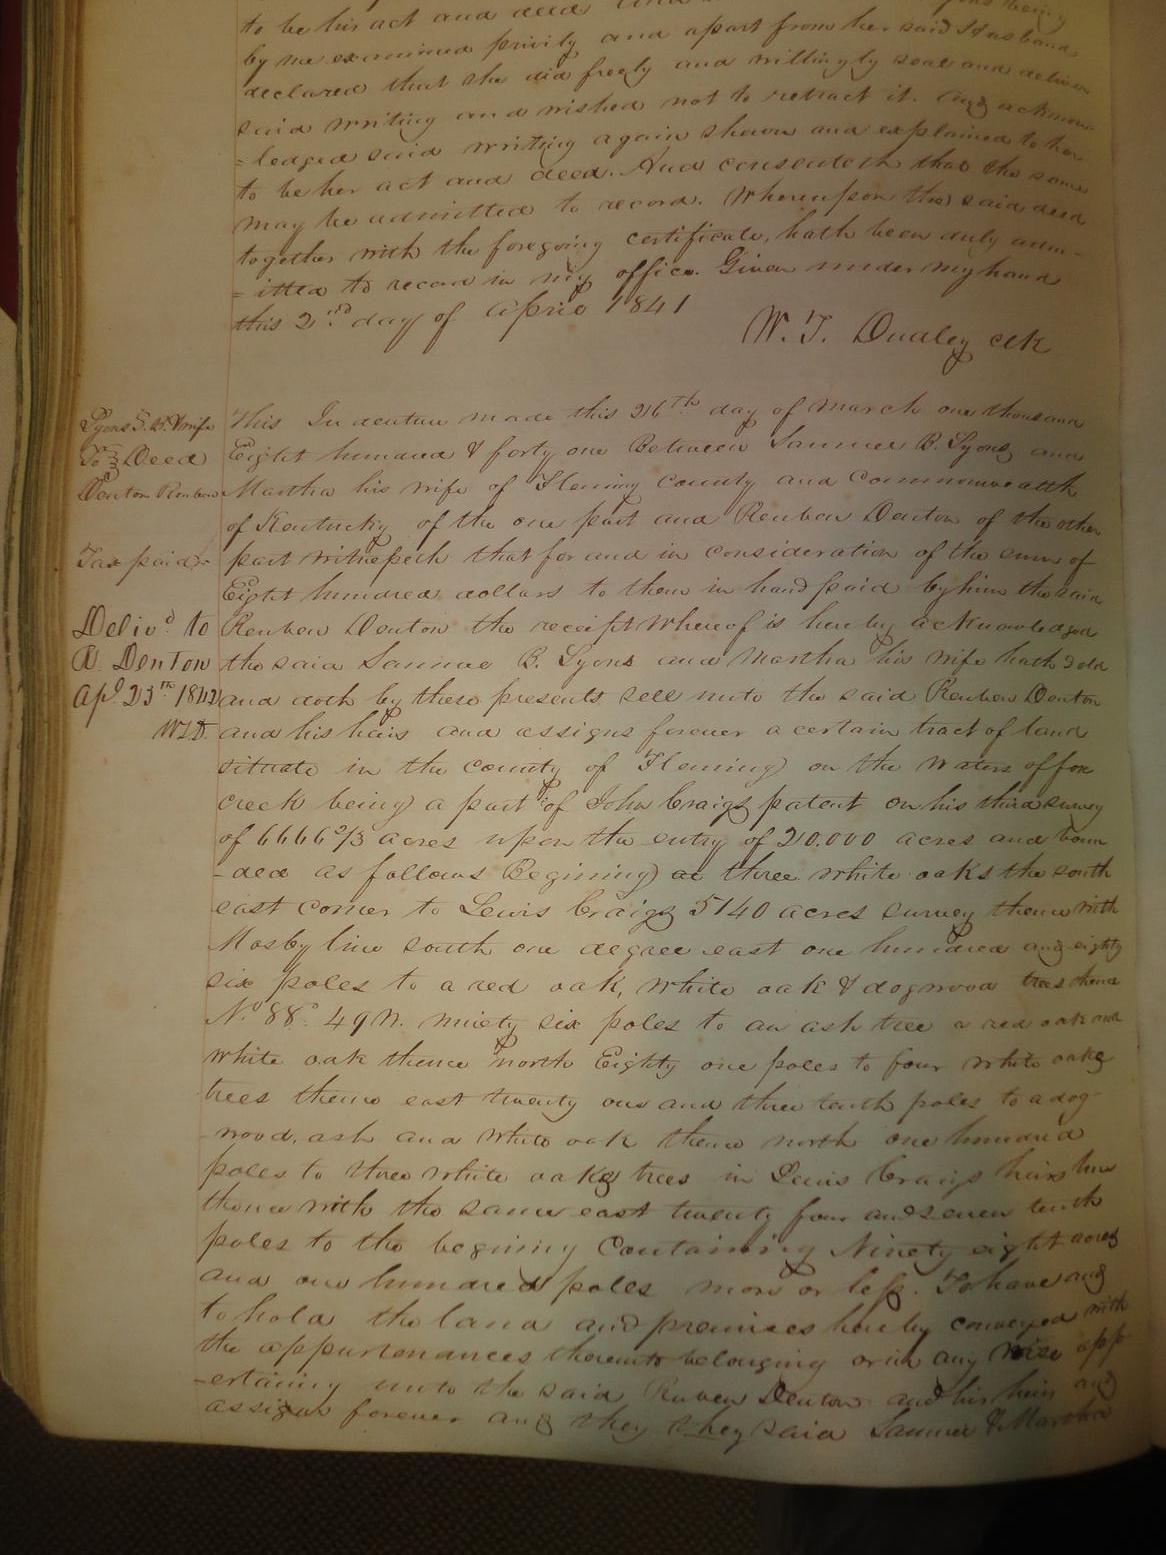 to be his act and deed And
by me examined privily and apart from her said Husband
declared that she did freely and willingly seal and deliver
said writing and wished not to retract it. And acknow-
=ledged said writing again shewn and explained to her
to be her act and deed. And consenteth that the same
may be admitted to record. Whereupon the said deed
together with the foregoing certificate, hath been duly adm-
=itted to record in my office. Given under my hand
this 2nd day of April 1841
W. T. Dudley Clk
Lyons S. B. & wife
To } Deed
Denton Reuben
Tax paid
Delivd. to
R. Denton
Apl. 23rd 1842
WTD.
This Indenture made this 26th day of March one thousand
Eight hundred & forty one Between Samuel B. Lyons and
Martha his wife of Fleming County and Commonwealth
of Kentucky of the one part and Reuben Denton of the other
part witnesseth that for and in consideration of the sum of
Eight hundred dollars to them in hand paid by him the said
Reuben Denton the receipt whereof is hereby acknowledged
the said Samuel B. Lyons and Martha his wife hath sold
and doth by these presents sell unto the said Reuben Denton
and his heirs and assigns forever a certain tract of land
situate in the county of Fleming on the waters of fox
creek being a part of John Craigs patent on his third survey
of 6666 2/3 acres upon the entry of 20.000 acres and boun
-ded as follows Begining at three white oaks the south
east corner to Lewis Craigs 5140 acres survey thence with
Mosby line south one degree east one hundred and eighty
six poles to a red oak, white oak & dogwood trees thence
No. 88° 49 W. ninety six poles to an ash tree a red oak and
white oak thence north Eighty one poles to four white oaks
trees thence east twenty one and three tenth poles to a dog-
-wood, ash and white oak thence north one hundred
poles to three white oaks trees in Lewis Craigs heirs line
thence with the same east twenty four and seven tenth
poles to the begining Containing Ninety eight acres
and one hundred poles more or less. To have and
to hold the land and premises hereby conveyed with
the appurtenances thereunto belonging or in any wise app-
-ertaining unto the said Ruben Denton and his heirs and
assigns forever and they they said Samuel & Martha